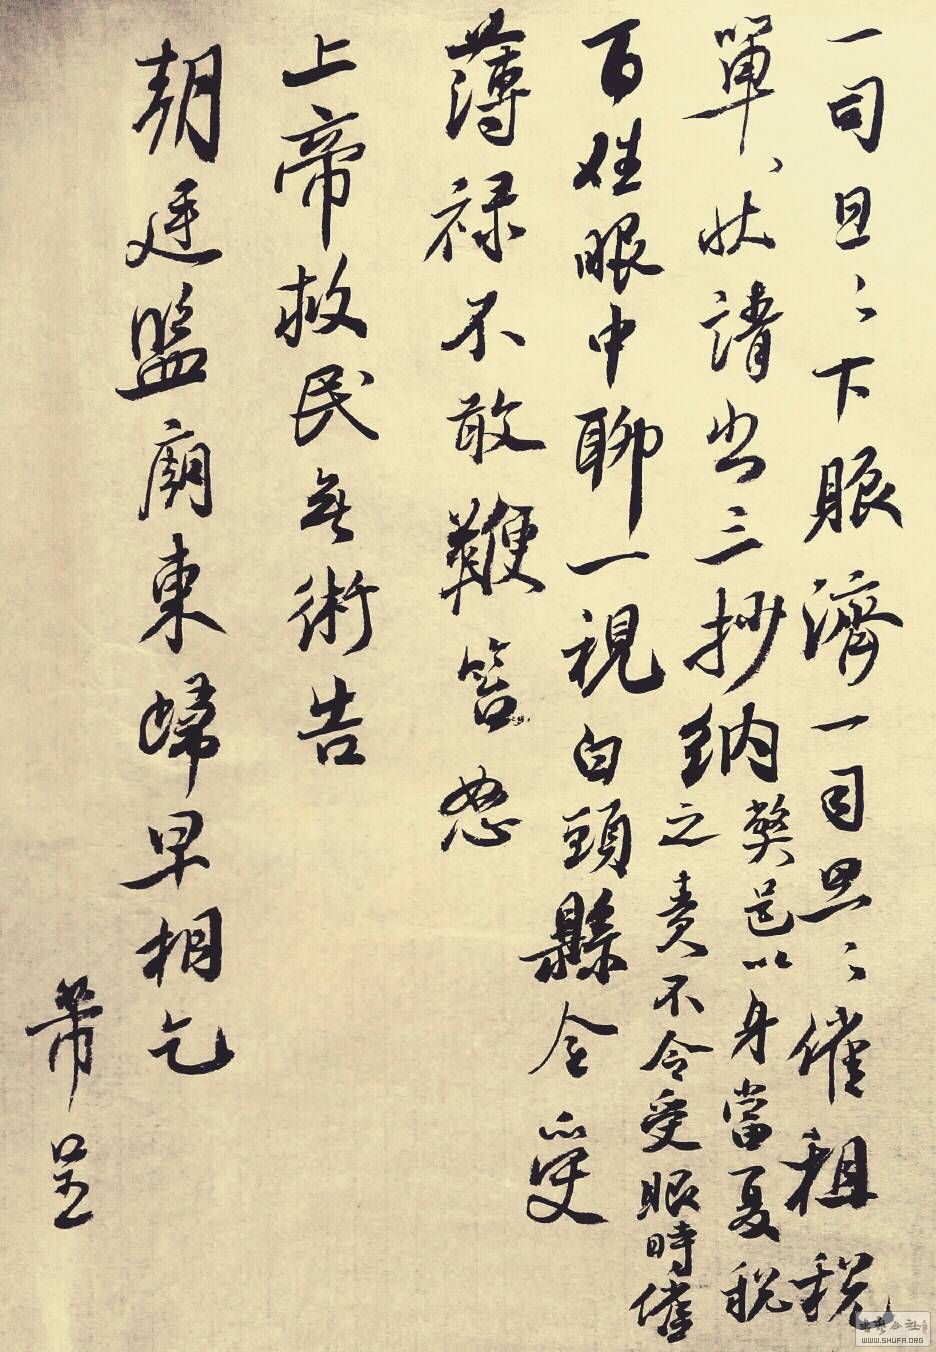 一司旦〻下賑濟一司旦〻催租税
單〻狀請出三抄納弊邑以身當夏税
之責不令受賑時催
百姓眼中聊一視白頭縣令受
薄禄不敢鞭笞怒
上帝救民無術告
朝廷監廟東歸早相乞
芾呈
WWW.SHUFA.ORG